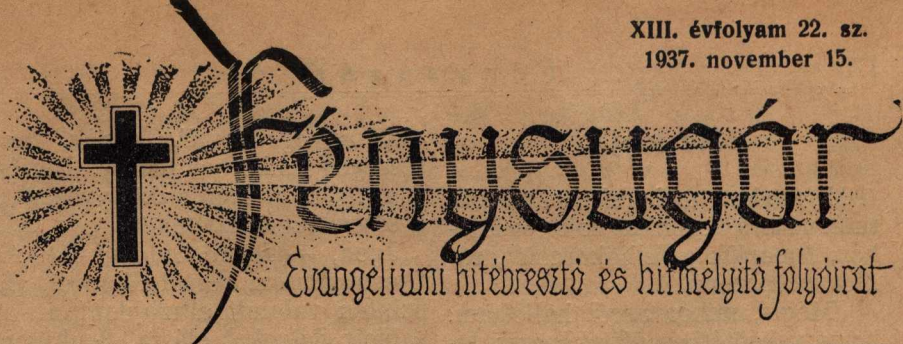 XIII. évfolyam 22. sz.
1937. november 15.
Fénysugár
Evangéliumi hitébresztő és hitmélyitő folyóirat